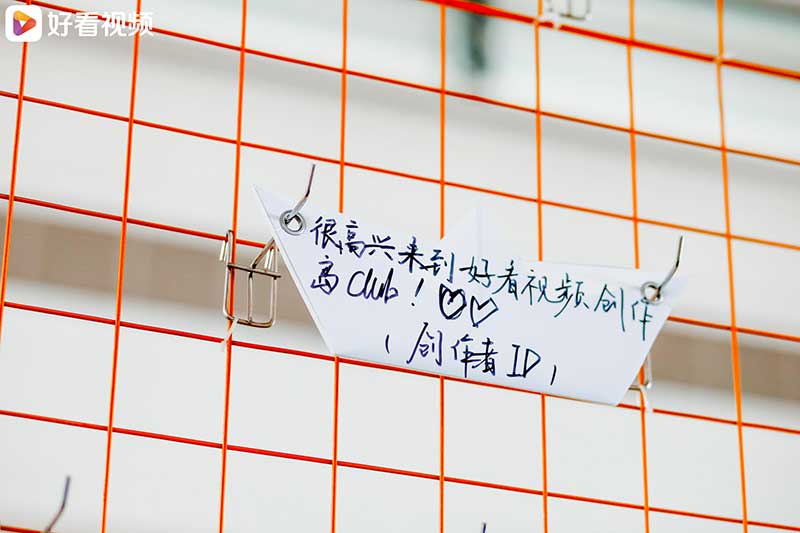 好看视频
很高兴来到好看视频创作
高Club!
(创作者ID)